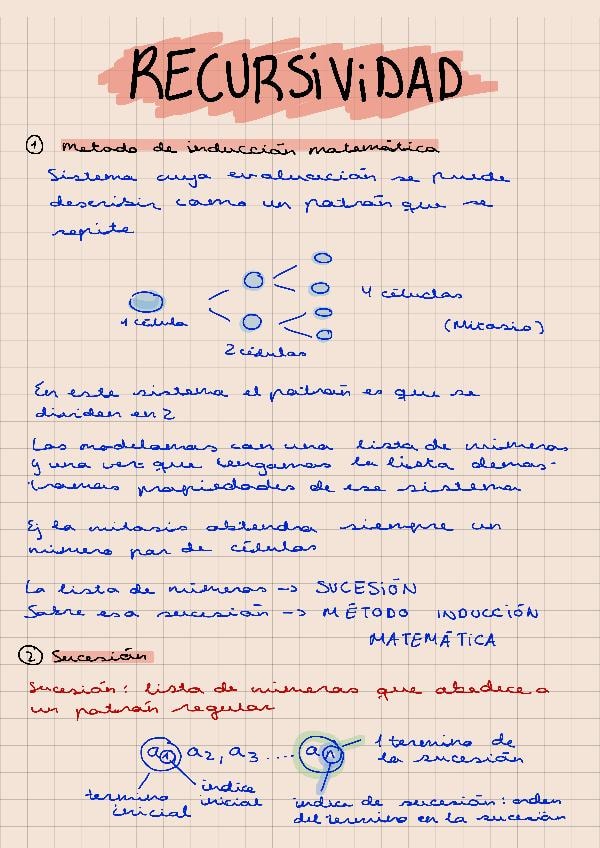 RECURSiViDAD
① Metodo de inducción matemática
Sistema cuya evaluación se puede
describir como un patrón que se
repite
1 célula
2 células
4 células
(Mitosis)
En este sistema el patrón es que se
dividen en 2
Los modelamos con una lista de números
y una vez que tengamos la lista demos-
tramos propiedades de ese sistema
Ej la mitosis obtendra siempre un
número par de células
La lista de números -> SUCESIÓN
Sobre esa sucesión -> MÉTODO INDUCCIÓN
MATEMÁTICA
② Sucesión
Sucesión: lista de números que obedece a
un patrón regular
a1 a2, a3 .... an
1 termino de
la sucesión
termino
inicial
índice
inicial
indice de sucesión: orden
del termino en la sucesión